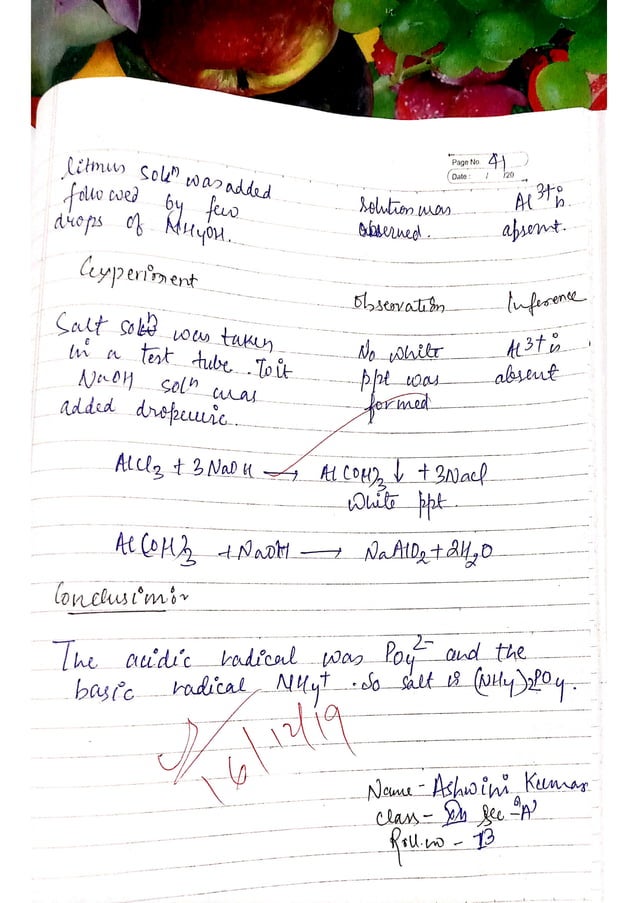 Page No. 41
Date : / /20
litmus solⁿ was added
followed by few
drops of NH4OH.
solution was
observed.
Al³⁺ is
absent.
Experiment
Observation
Inference
Salt solⁿ was taken
in a test tube. To it
NaOH solⁿ was
added dropwise.
No white
ppt was
formed
Al³⁺ is
absent
AlCl₃ + 3NaOH → Al(OH)₃ ↓ + 3NaCl
White ppt.
Al(OH)₃ + NaOH → NaAlO₂ + 2H₂O
Conclusion:
The acidic radical was PO4²⁻ and the
basic radical NH4⁺. So salt is (NH4)₂PO4.
16/12/19
Name - Ashwini Kumar
Class - Sec - 'A'
Roll.no - 13